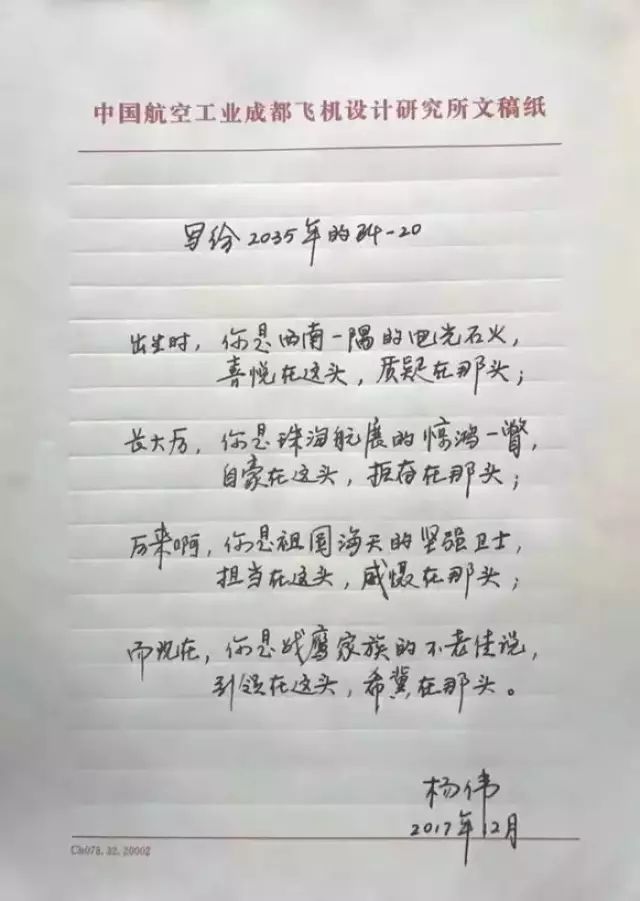 中国航空工业成都飞机设计研究所文稿纸
写给2035年的歼-20
出生时，你是西南一隅的电光石火，
喜悦在这头，质疑在那头；
长大后，你是珠海航展的惊鸿一瞥，
自豪在这头，拒存在那头；
后来啊，你是祖国海天的坚强卫士，
担当在这头，威慑在那头；
而现在，你是战鹰家族的不老传说，
引领在这头，希冀在那头。
杨伟
2017年12月
Ch078.32.20002